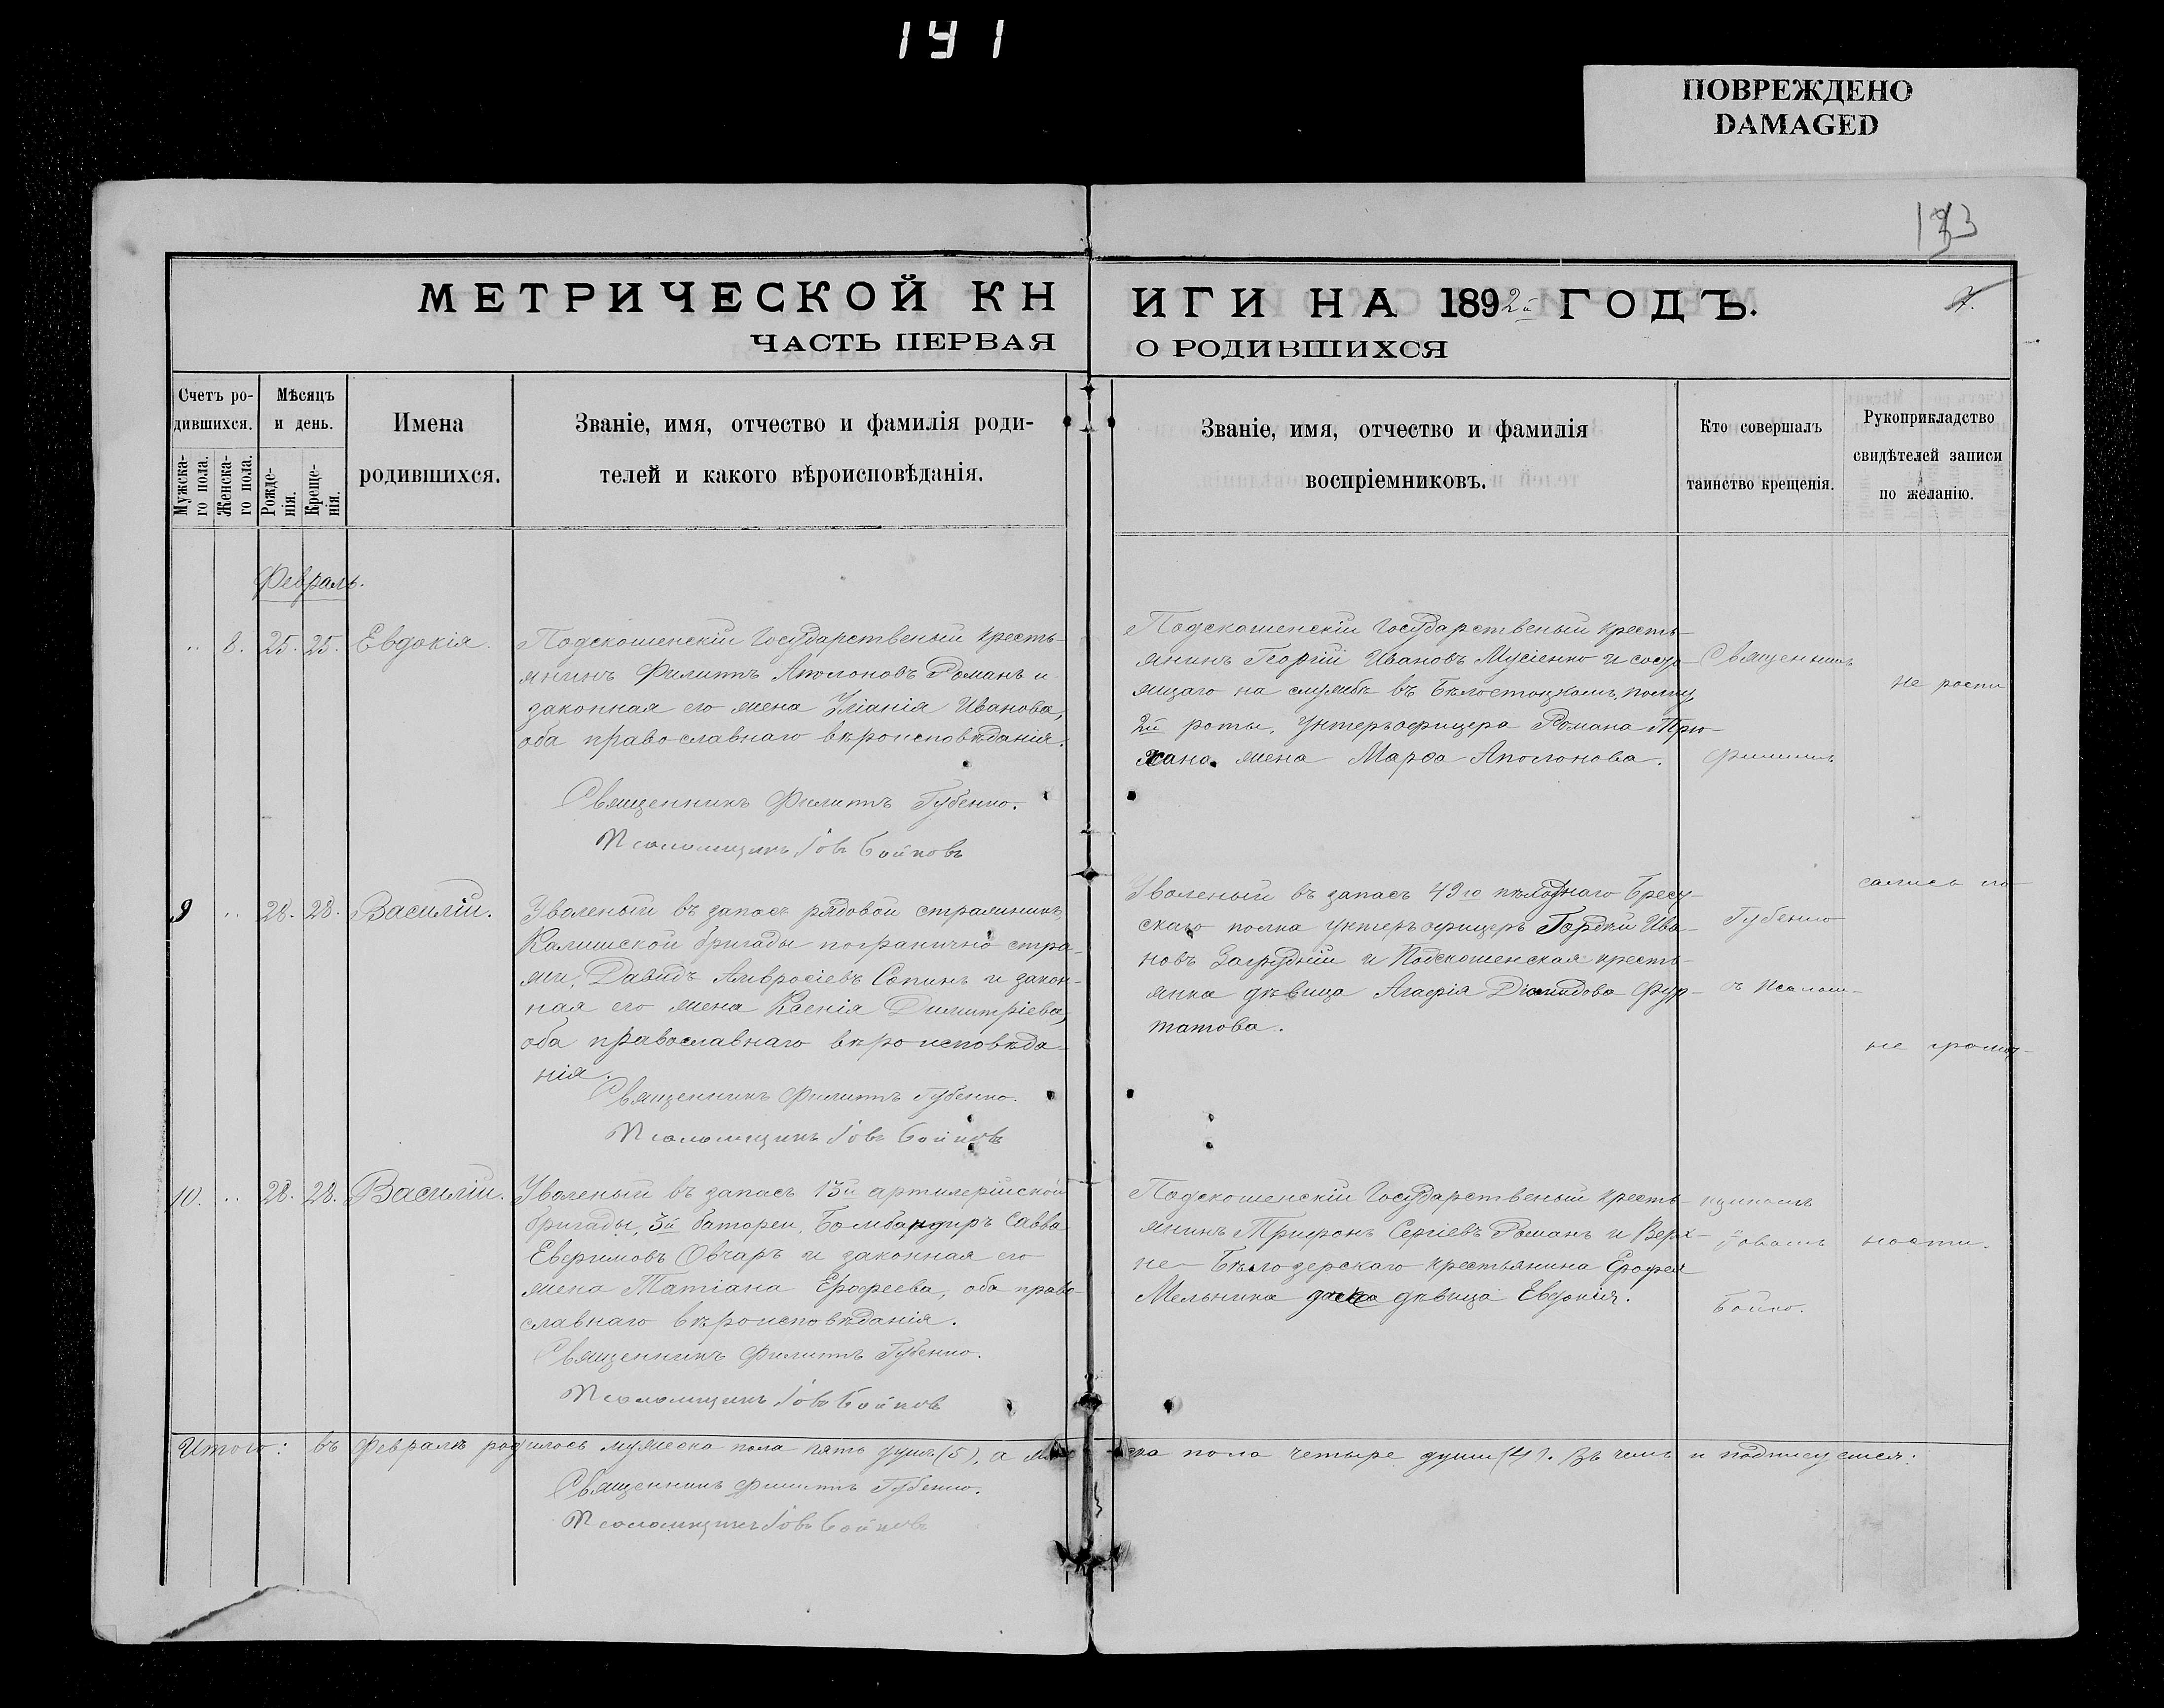 141
ПОВРЕЖДЕНО
DAMAGED
МЕТРИЧЕСКОЙ КН
ЧАСТЬ ПЕРВАЯ
ИГИ НА 1892й ГОДЪ.
7.
О РОДИВШИХСЯ
Счетъ ро-
дившихся.
Мужска-
го пола.
Женска-
го пола.
Мѣсяцъ
и день.
Рожде-
нія.
Креще-
нія.
Имена
родившихся.
Званіе, имя, отчество и фамилія роди-
телей и какого вѣроисповѣданія.
Званіе, имя, отчество и фамилія
воспріемниковъ.
Кто совершалъ
таинство крещенія.
Рукоприкладство
свидѣтелей записи
по желанію.
Февраль.
" 8. 25. 25. Евдокія.
Подскошенскій Государственый кресть-
янинъ Филиппъ Аполоновъ Романъ и
законная его жена Уліанія Иванова,
оба православнаго вѣроисповѣданія.
Священникъ Филиппъ Губенко.
Псаломщикъ Іовъ Бойковъ
Подскошенскій Государственый кресть-
янинъ Георгій Ивановъ Мусіенко и состо-
ящаго на службѣ въ Бѣлостоцкомъ полку,
2й роты, Унтеръофицера Романа
жена Марфа Аполонова.
Священникъ
Филиппъ
9 " 28. 28. Василій.
Уволеный въ запасъ рядовой стражникъ,
Калишской бригады погранично стра-
жи, Давидъ Амвросіевъ Сопинъ и закон-
ная его жена Ксенія Димитріева,
оба православнаго вѣроисповѣда-
нія.
Священникъ Филиппъ Губенко.
Псаломщикъ Іовъ Бойковъ
Уволеный въ запасъ 49го пѣхотнаго Брест-
скаго полка унтеръофицеръ Гордій Ива-
новъ Загрудній и Подскошенская кресть-
янка дѣвица Агафія Діомидова Фур-
татова.
Губенко
съ Псалом-
10. " 28. 28. Василій.
Уволеный въ запасъ 15й артилерійской
бригады, 3й батареи, Бомбандиръ Савва
Евфимовъ Овчаръ и законная его
жена Татіана Ерофеева, оба право-
славнаго вѣроисповѣданія.
Священникъ Филиппъ Губенко.
Псаломщикъ Іовъ Бойковъ
Подскошенскій Государственый кресть-
янинъ Трифонъ Сергіевъ Романъ и Верх-
не-Бѣлозерскаго крестьянина Ерофея
Мельника дочка дѣвица Евдокія.
щикомъ
Іовомъ
Бойко.
не роспи
сались по
не грамот-
ности.
Итого: въ Февралѣ родилось мужеска пола пять душъ (5), а женска пола четыре души (4). Въ чемъ и подписуемся:
Священникъ Филиппъ Губенко.
Псаломщикъ Іовъ Бойковъ